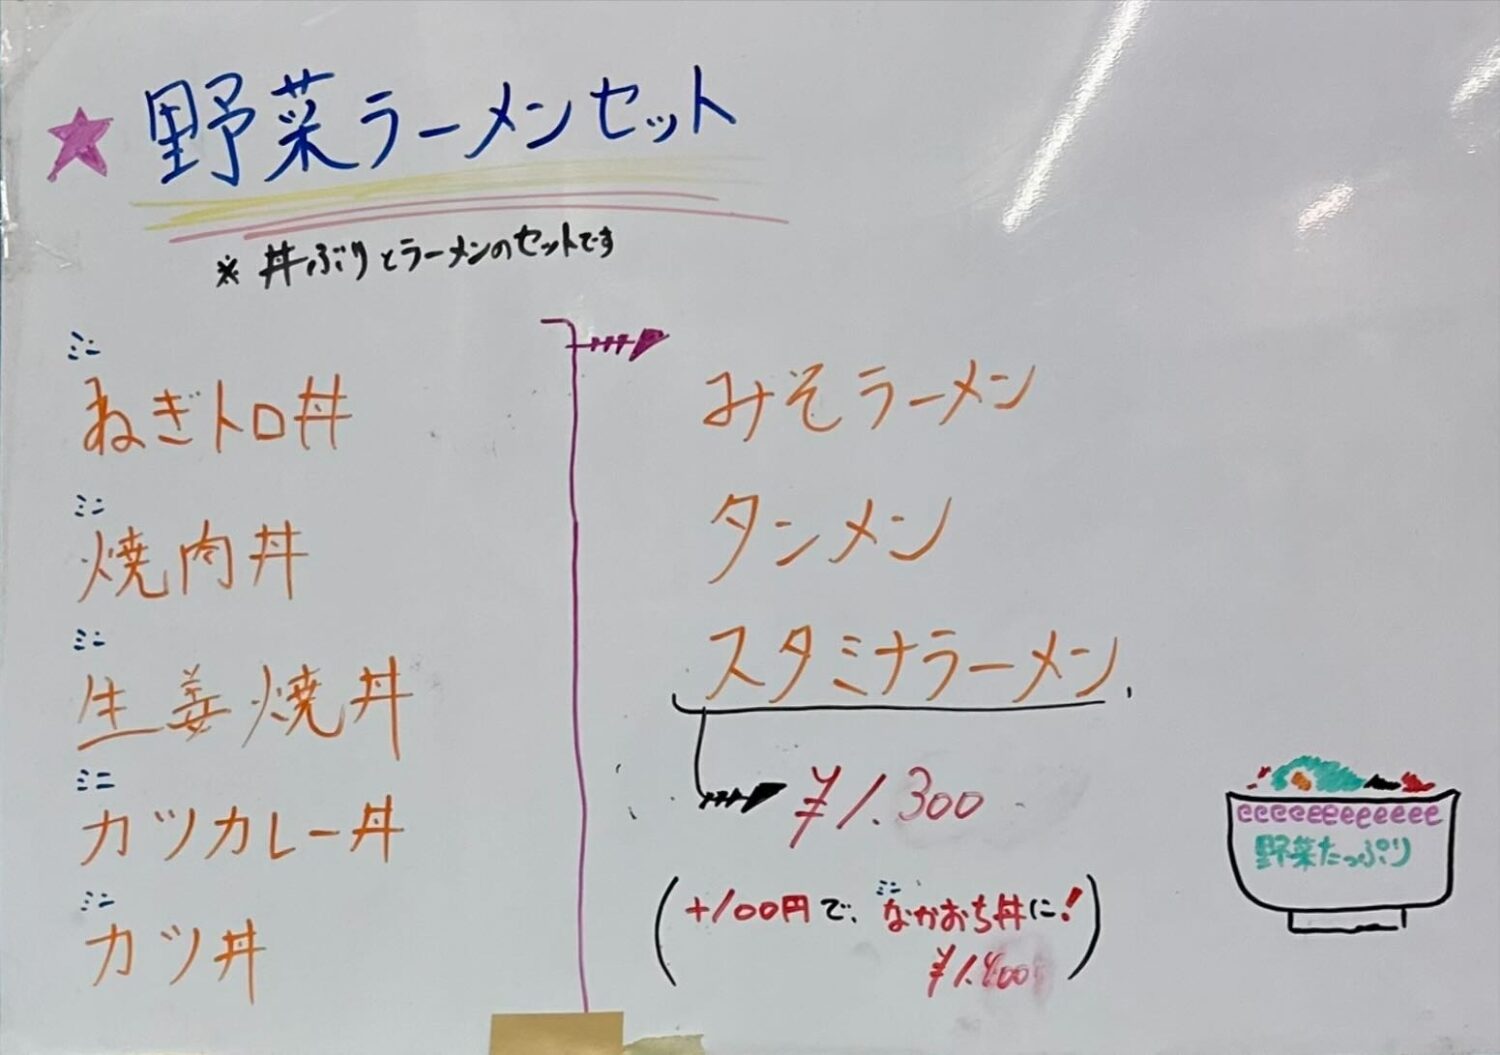 ★野菜ラーメンセット
※丼ぶりとラーメンのセットです
ミニ
ねぎトロ丼
ミニ
焼肉丼
ミニ
生姜焼丼
ミニ
カツカレー丼
ミニ
カツ丼
みそラーメン
タンメン
スタミナラーメン
¥1.300
(+100円で、ミニなかおち丼に!)
¥1.400
野菜たっぷり